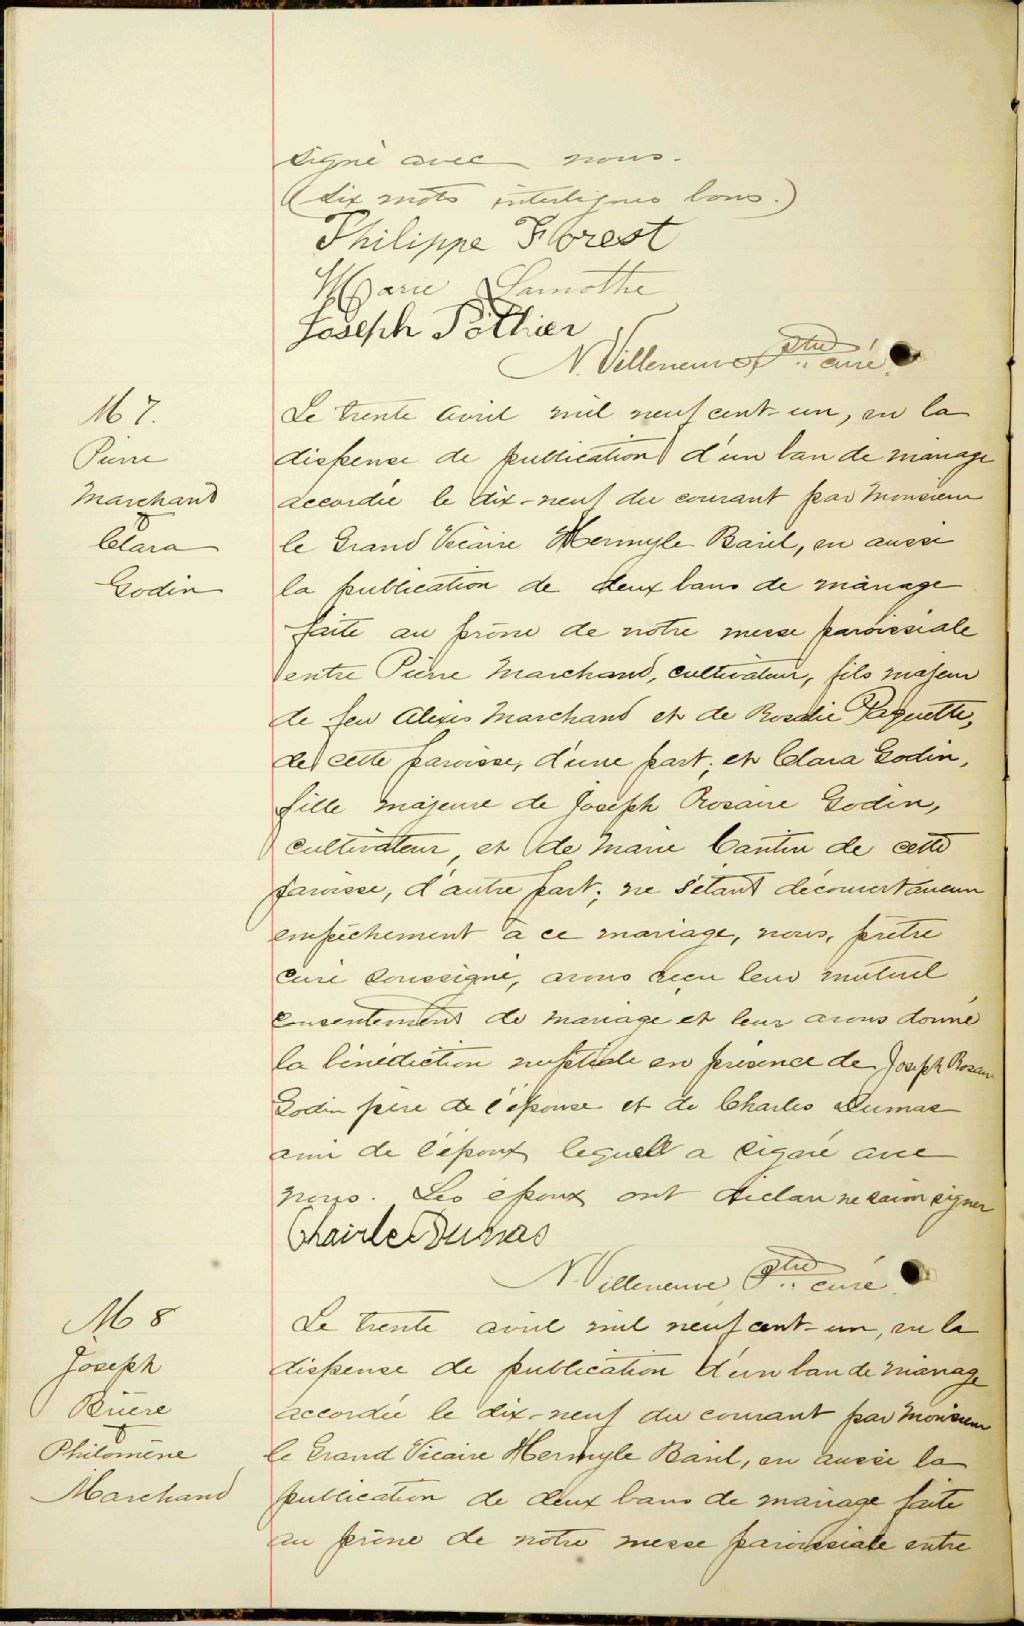 signé avec nous.
(dix mots interlignes bons.)
Philippe Forest
Marie Lamothe
Joseph Pothier
N. Villeneuve Ptre curé.
M 7.
Pierre
Marchand
&
Clara
Godin
Le trente avril mil neuf cent-un, vu la
dispense de publication d'un ban de mariage
accordée le dix-neuf du courant par Monsieur
le Grand Vicaire Hermyle Baril, vu aussi
la publication de deux bans de mariage
faite au prône de notre messe paroissiale
entre Pierre Marchand, cultivateur, fils majeur
de feu Alexis Marchand et de Rosalie Paquette,
de cette paroisse, d'une part; et Clara Godin,
fille majeure de Joseph Rosaire Godin,
cultivateur, et de Marie Cantin de cette
paroisse, d'autre part; ne s'étant découvert aucun
empêchement à ce mariage, nous, prêtre
curé soussigné, avons reçu leur mutuel
consentement de mariage et leur avons donné
la bénédiction nuptiale en présence de Joseph Rosaire
Godin père de l'épouse et de Charles Dumas
ami de l'époux lequel a signé avec
nous. Les époux ont déclaré ne savoir signer
Chairles Dumas
N. Villeneuve Ptre curé.
M 8
Joseph
Brière
&
Philomène
Marchand
Le trente avril mil neuf cent-un, vu la
dispense de publication d'un ban de mariage
accordée le dix-neuf du courant par Monsieur
le Grand Vicaire Hermyle Baril, vu aussi la
publication de deux bans de mariage faite
au prône de notre messe paroissiale entre